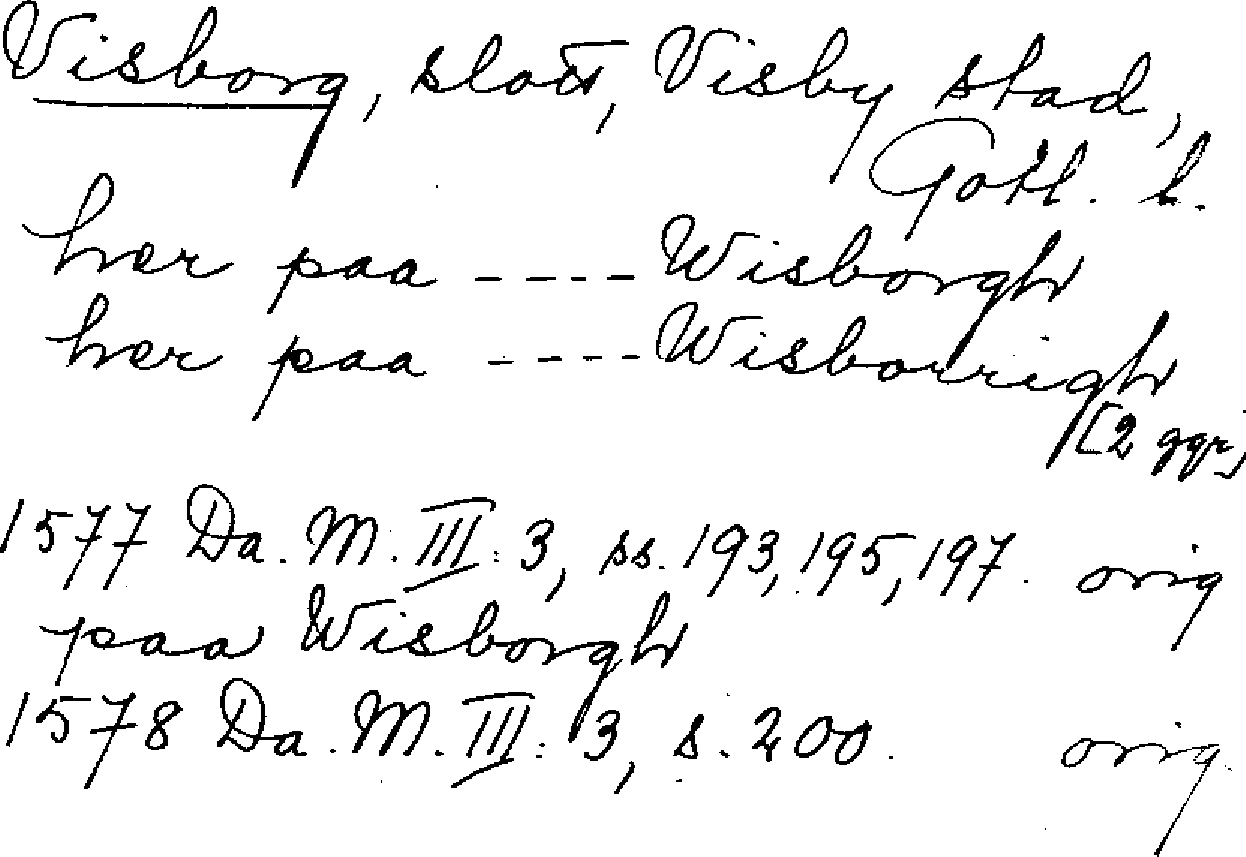 Visborg, slott, Visby stad,
Gotl. l.
her paa ---- Wisborgh
her paa ---- Wisborrigh
[2 ggr]
1577 Da. M. III: 3, ss. 193, 195, 197. orig
paa Wisborgh
1578 Da. M. III: 3, s. 200. orig.